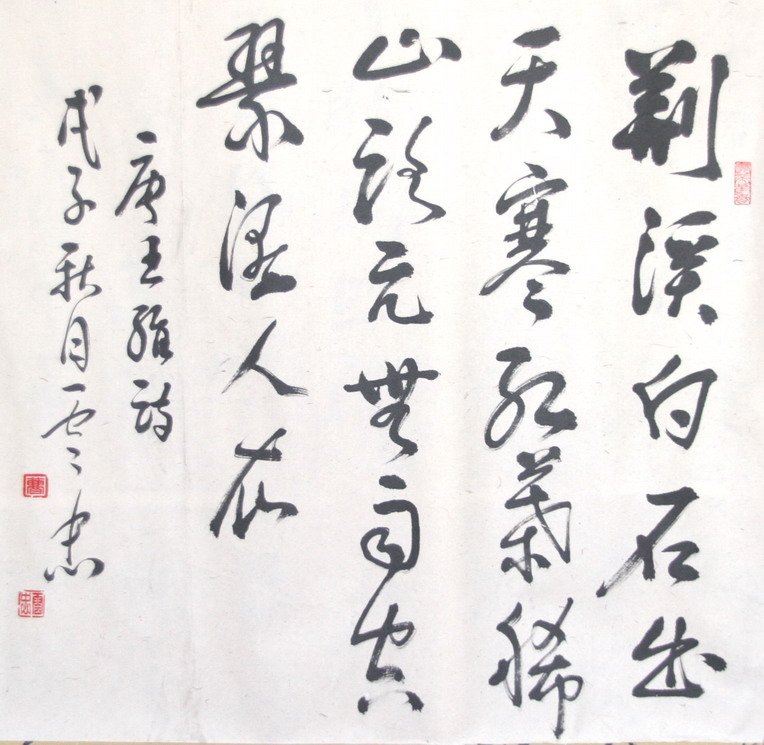 荆溪白石出
天寒紅葉稀
山路元無雨空
翠濕人衣
唐王維詩
戊子秋月雲忠